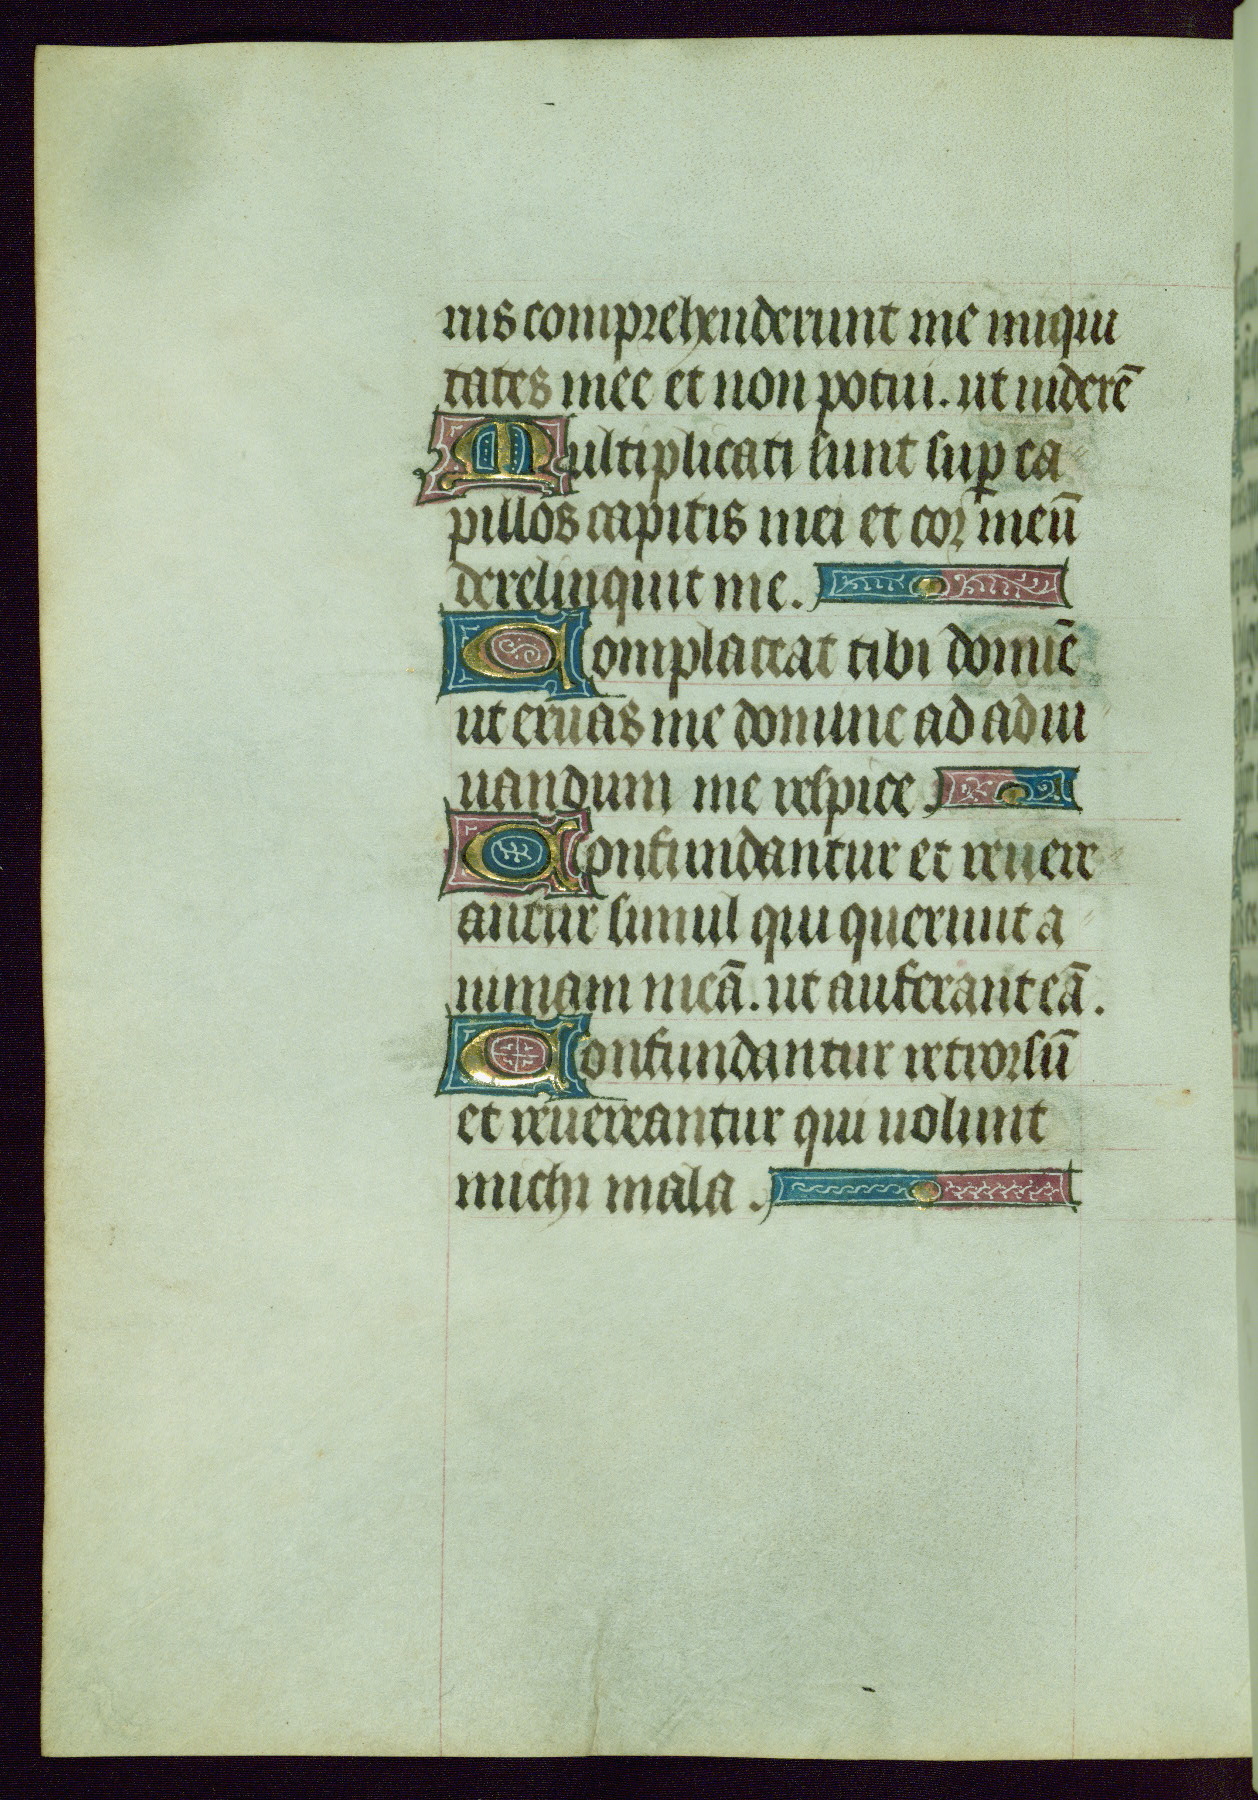 rus comprehenderunt me iniqui
tates mee et non potui. ut uiderē
Multiplicati sunt suꝑ ca
pillos capitis mei et cor meū
derelinquit me.
Complaceat tibi domiē
ut eruas me domine ad adiu
uandum me respice.
Confundantur et reuere
antur simul qui querunt a
nimam meā. ut auferant eā.
Confundantur retrorsū
et reuereantur qui uolunt
michi mala.